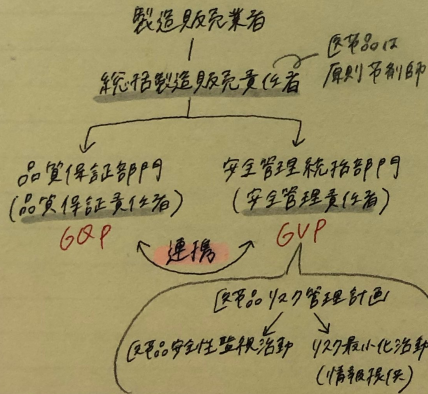 製造販売業者
総括製造販売責任者
医薬品は
原則薬剤師
品質保証部門
(品質保証責任者)
GQP
安全管理統括部門
(安全管理責任者)
GVP
連携
医薬品リスク管理計画
医薬品安全性監視活動
リスク最小化活動
(情報提供)